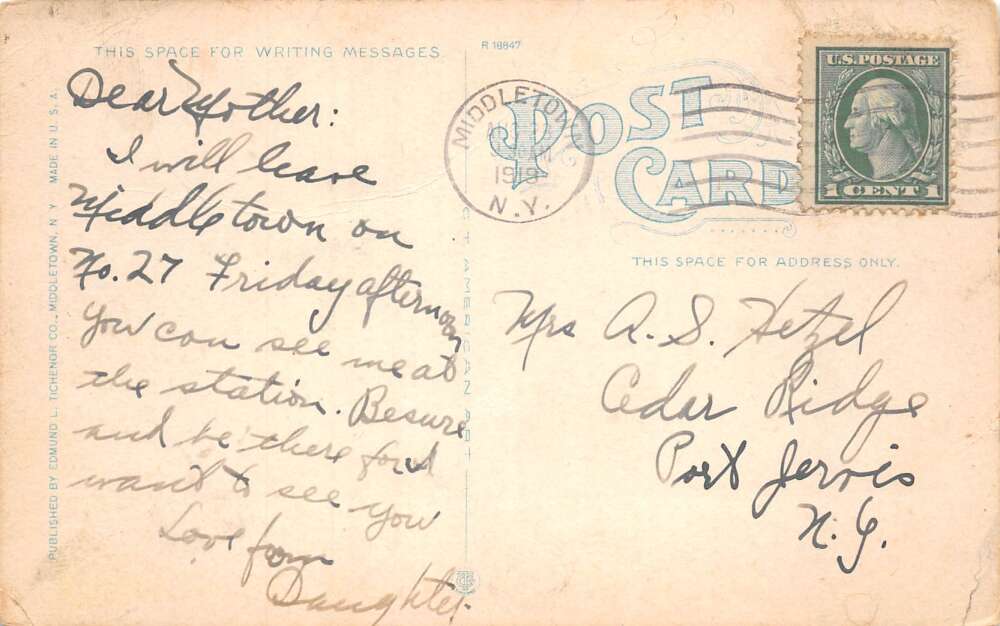 THIS SPACE FOR WRITING MESSAGES
R 18847
Dear Mother:
I will leave
Middletown on
No. 27 Friday afternoon
you can see me at
the station. Be sure
and be there for I
want to see you
Love from
Daughter.
PUBLISHED BY EDMUND L. TICHENOR CO., MIDDLETOWN, N.Y. MADE IN U.S.A.
MIDDLETOWN
1919
N.Y.
POST
CARD
U.S. POSTAGE
1 CENT 1
THIS SPACE FOR ADDRESS ONLY.
Mrs A. S. Hetzel
Cedar Ridge
Port Jervis
N.Y.